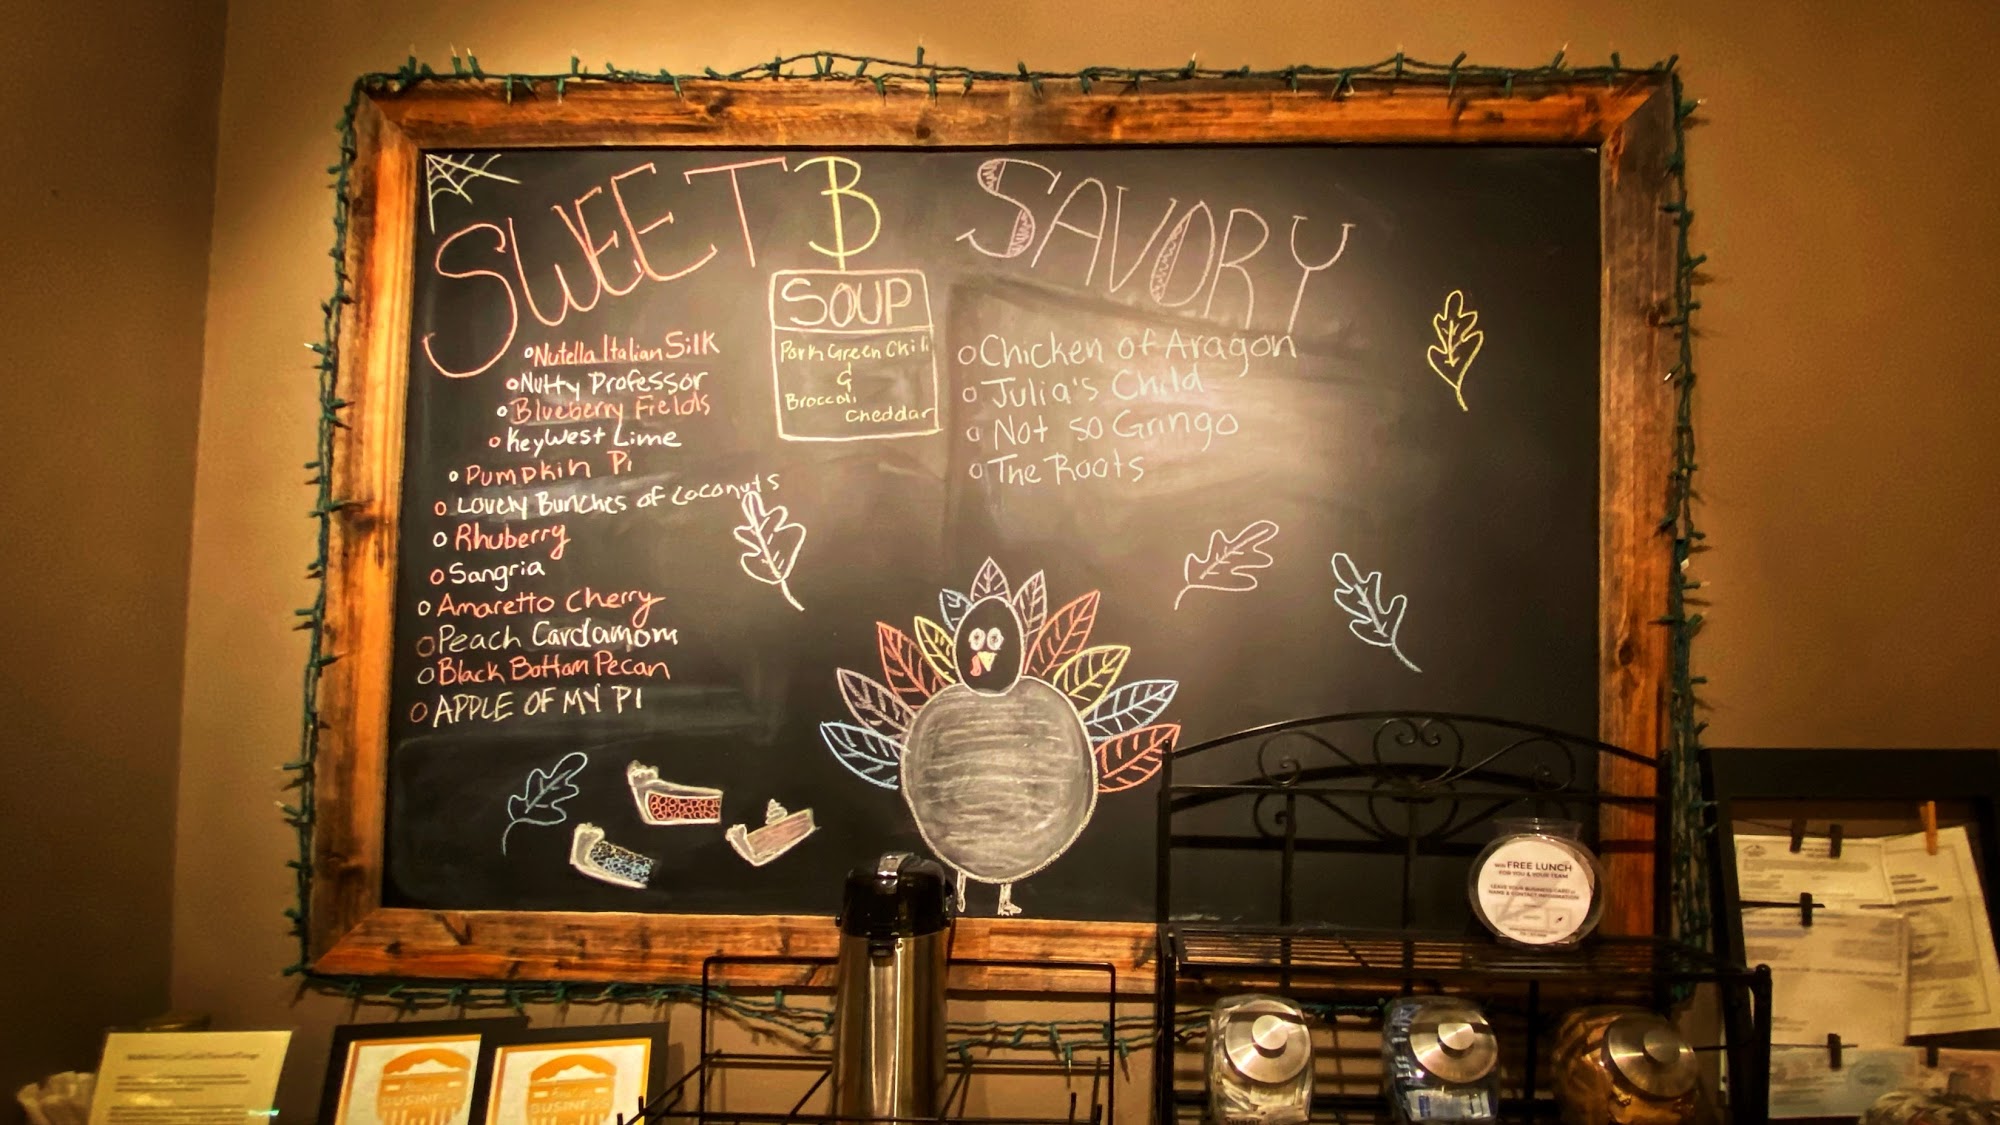 SWEET & SAVORY
Nutella Italian Silk
Nutty Professor
Blueberry Fields
Key West Lime
Pumpkin Pi
Lovely Bunches of Coconuts
Rhuberry
Sangria
Amaretto Cherry
Peach Cardamom
Black Bottom Pecan
APPLE OF MY PI
SOUP
Pork Green Chili
&
Broccoli
Cheddar
Chicken of Aragon
Julia's Child
Not so Gringo
The Roots
WIN FREE LUNCH
FOR YOU & YOUR TEAM
LEAVE YOUR BUSINESS CARD or
NAME & CONTACT INFORMATION
BUSINESS
BUSINESS